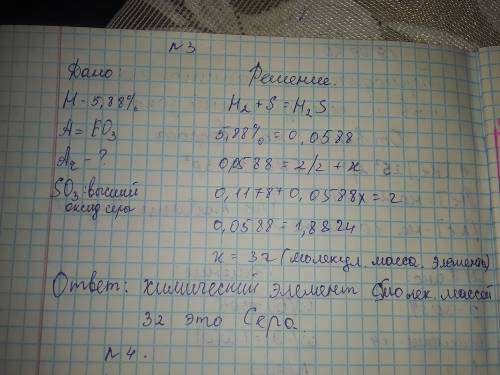 №3
Дано:
Решение.
H - 5,88%
H2 + S = H2S
A = EO3
5,88% = 0,0588
Ar - ?
0,0588 = 2/2 + x
SO3 - высший
оксид серы
0,1178 + 0,0588x = 2
0,0588 = 1,8824
x = 32 (молекул. масса элемента)
Ответ: химический элемент с молек. массой
32 это Сера
№4.